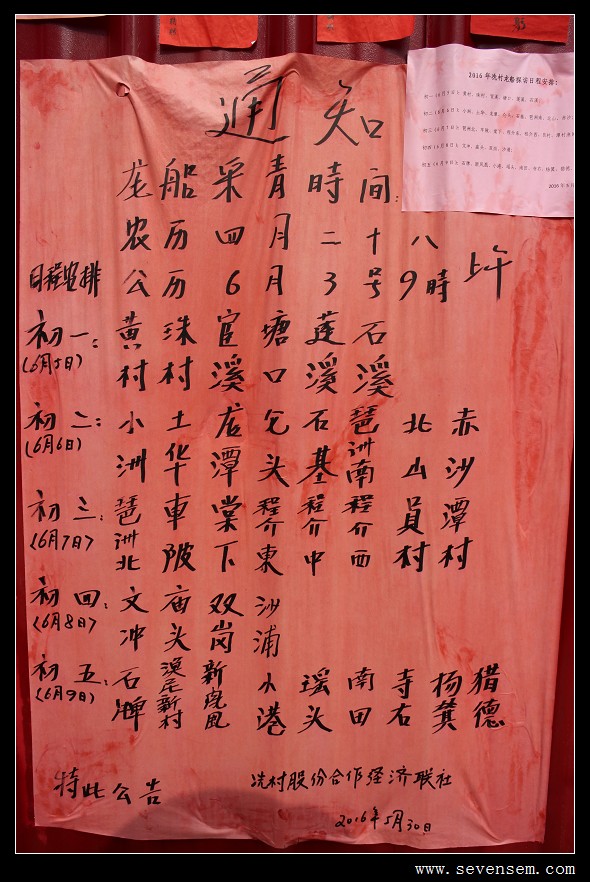 通知
龙船采青時间:
农历四月二十八
公历6月3号9時上午
日程安排
初一: 黄村 珠村 宦溪 塘口 莲溪 石溪
(6月5日)
初二: 小洲 土华 龙潭 仑头 石基 琶洲南 北山 赤沙
(6月6日)
初三: 琶洲北 車陂 棠下 程介東 程介中 程介西 員村 潭村
(6月7日)
初四: 文冲 庙头 双岗 沙浦
(6月8日)
初五: 石牌 渔民新村 小港 瑶头 南田 寺右 杨箕 猎德
(6月9日)
特此公告
冼村股份合作经济联社
2016年5月30日
2016年冼村龙船探访日程安排:
www.sevensem.com